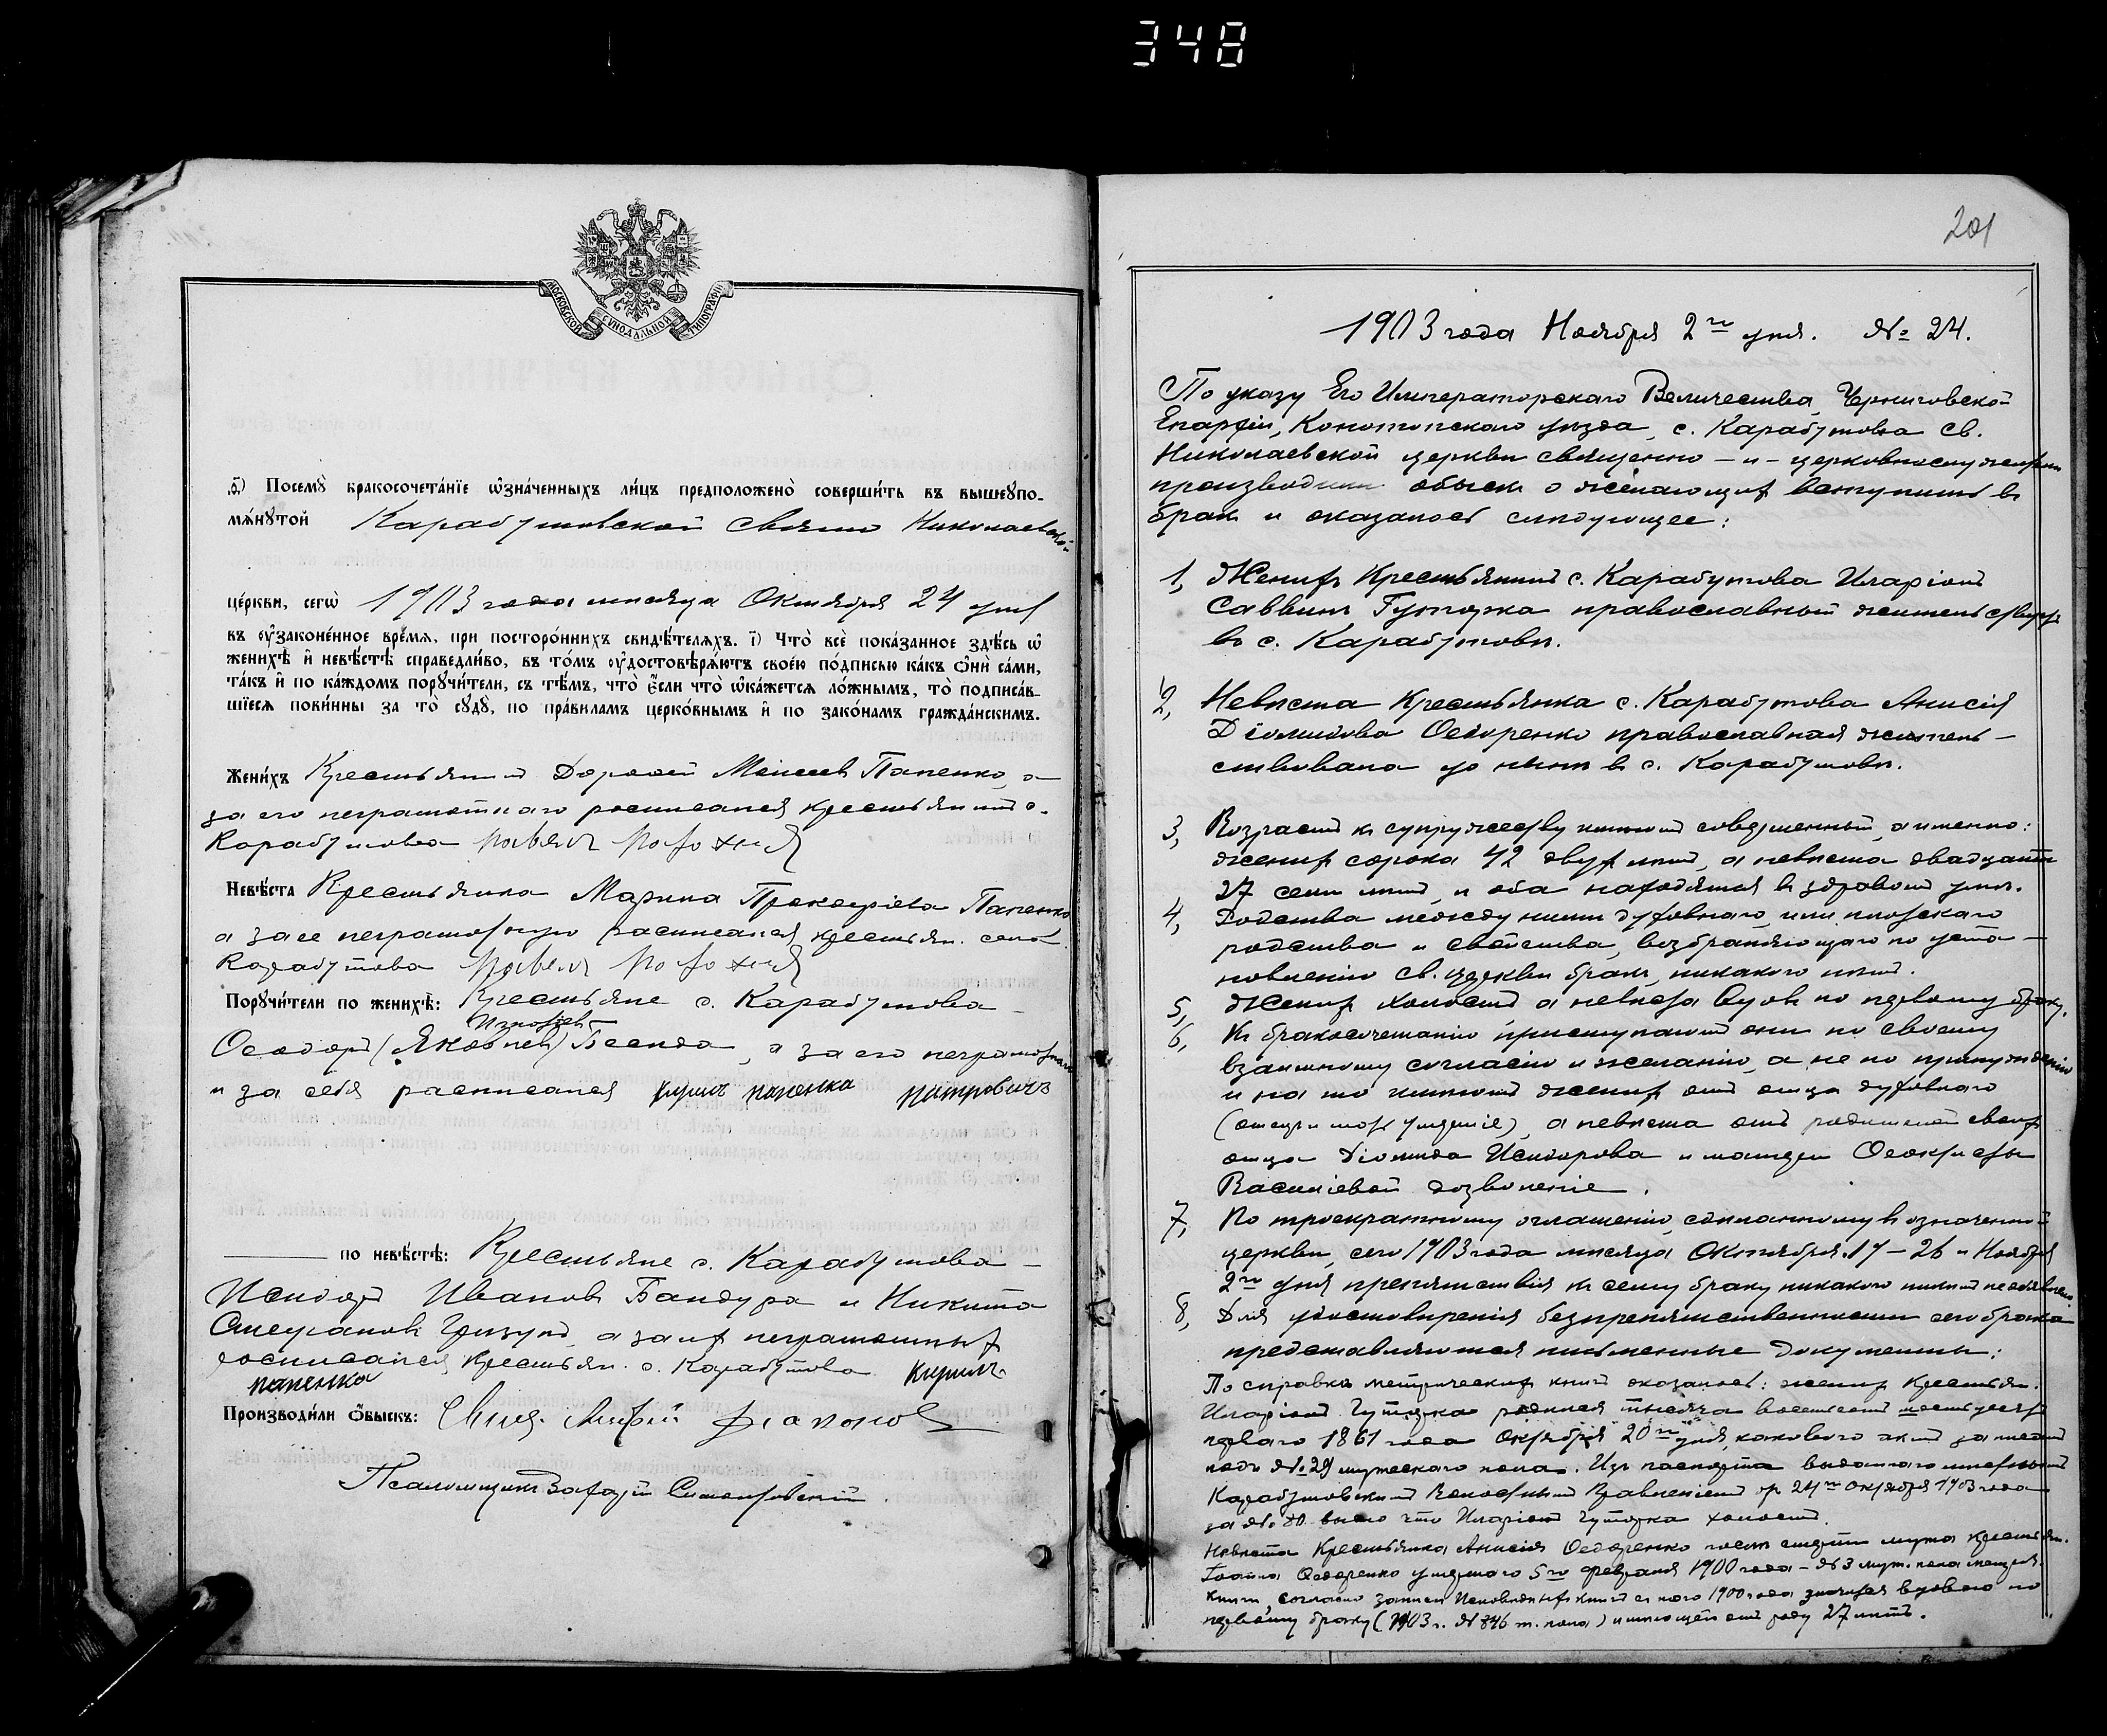 348
МОСКОВСКОЙ СѴНОДАЛЬНОЙ ТИПОГРАФІИ
Посемꙋ̀ бракосочета́нїе ѡ҆зна́ченныхъ ли́цъ предположено̀ соверши́ть въ вышеꙋпо-
мѧ́нꙋтой Карабутовской Свято Николаевской
це́ркви, сегѡ̀ 1903 года месяца Октября 24 дня
въ ᲂу҆законе́нное вре́мѧ, при посторо́ннихъ свидѣ́телѧхъ. і҃) Что̀ всѐ пока́занное здѣ́сь ѡ҆
женихѣ̀ и҆ невѣ́стѣ справедли́во, въ то́мъ ᲂу҆достовѣрѧ́ютъ свое́ю по́дписью ка́къ ѻ҆нѝ са́ми,
та́къ и҆ по ка́ждомъ порꙋчи́тели, съ тѣ́мъ, что̀ є҆́сли что̀ ѡ҆ка́жетсѧ ло́жнымъ, то̀ подписа́в-
шїесѧ пови́нны за то̀ сꙋдꙋ̀, по пра́виламъ церко́внымъ и҆ по зако́намъ гражда́нскимъ.
Жени́хъ Крестьянинъ Дороѳей Моисеевъ Папенко, а
за его неграмотнаго росписался крестьянинъ с.
Карабутова
Невѣ́ста Крестьянка Марина Прокофіева Папенко
а за ее неграмотную расписался крестьян. села
Карабутова
Порꙋчи́тели по женихѣ̀: Крестьяне с. Карабутова
Ѳеодоръ (Яковлевъ) а за его неграмотнаго
и за себя расписался Кирилъ папенка питровичъ
по невѣ́стѣ: Крестьяне с. Карабутова
Исидоръ Ивановъ Бандура и Никита
Стефановъ а за ихъ неграмотныхъ
росписался крестьян. с. Карабутова Кирилъ
папенка
Производи́ли ѻ҆́быскъ: Свящ.
Псаломщикъ
201
1903 года Ноября 2го дня. № 24.
По указу Его Императорскаго Величества, Черниговской
Епархіи, Конотопскаго уѣзда, с. Карабутова Св.
Николаевской церкви священно-и-церковнослужители
производили обыскъ о желающихъ вступить въ
бракъ и оказалось слѣдующее:
1, Женихъ Крестьянинъ с. Карабутова Иларіонъ
Саввинъ Гуторка православный жительствуетъ
въ с. Карабутовѣ.
2, Невѣста Крестьянка с. Карабутова Анисія
Діомидова Ѳедоренко православная житель-
ствовала до нынѣ въ с. Карабутовѣ.
3, Возрастъ къ супружеству имѣютъ совершенный, а именно:
женихъ сорока 42 двухъ лѣтъ, а невѣста двадцати
27 семи лѣтъ, и оба находятся въ здравомъ умѣ.
4, Родства между ними духовнаго, или плотскаго
родства и свойства, возбраняющаго по уста-
новленію св. церкви бракъ, никакого нѣтъ.
5, Женихъ холостъ а невѣста вдова по первому браку.
6, Къ бракосочетанію приступаютъ они по своему
взаимному согласію и желанію, а не по принужденію
и на то имѣютъ женихъ отъ отца духовнаго
а невѣста отъ родителей своихъ
отца Діомида Исидорова и матери Ѳеоктисты
Василіевой дозволеніе.
7, По троекратному оглашенію, сдѣланному въ означенной
церкви, сего 1903 года мѣсяца Октября 19-26 и Ноября
2го дня препятствія къ сему браку никакого никѣмъ не объявлено.
8, Для удостовѣренія безпрепятственности сего брака
представляются письменные документы:
По справкѣ метрическихъ книгъ оказалось: женихъ крестьян.
Иларіонъ Гуторка родился тысяча восемьсотъ шестьдесятъ
перваго 1861 года Октября 20го дня, каковаго актъ записанъ
подъ № 29 мужескаго пола. Изъ паспорта выданнаго
Карабутовскимъ Волостнымъ Правленіемъ отъ 24го Октября 1903 года
за № видно что Иларіонъ Гуторка холостъ.
Невѣста Крестьянка Анисія Ѳедоренко послѣ смерти мужа крестьян.
Ѳедоренко умершаго 5го февраля 1900 года - № 3 муж. пола метрич.
книги, согласно записи Исповѣдныхъ книгъ 1900 года значится вдовою по
первому браку (1903 г. № 846 ж. пола) имѣющей отъ роду 27 лѣтъ.